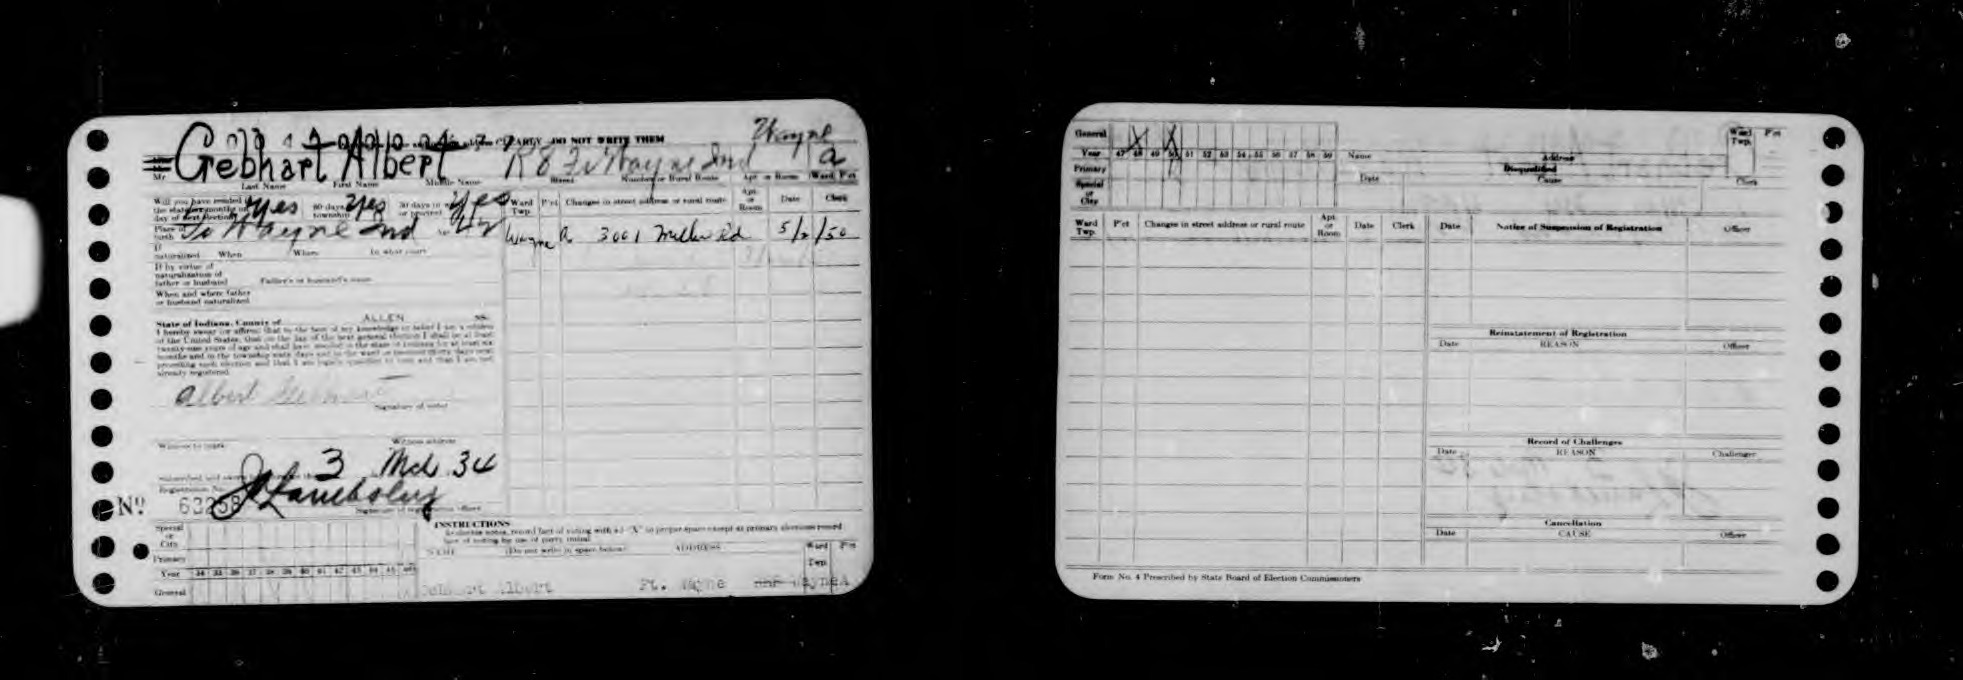 CLEARLY DO NOT WRITE THEM
Wayne
Gebhart Albert R 8 Ft Wayne Ind a
Mr.
Last Name First Name Middle Name Street Number or Rural Route Apt. or Room Ward P'ct
Will you have resided in Yes 60 days in Yes 30 days in Yes
day of next election township or precinct
Ward Twp. P'ct Changes in street address or rural route Apt. or Room Date Clerk
Place of birth Ft Wayne Ind 42
Wayne a 3001 Miller Rd 5/2/50
If naturalized When Where In what court
If by virtue of
naturalization of
father or husband Father's or husband's name
When and where father
or husband naturalized
State of Indiana, County of ALLEN ss.
I hereby swear (or affirm) that to the best of my knowledge or belief I am a citizen
of the United States, that on the day of the next general election I shall be at least
twenty-one years of age and shall have resided in the state of Indiana for at least six
months and in the township sixty days and in the ward or precinct thirty days next
preceding such election and that I am legally qualified to vote and that I am not
already registered.
Albert Gebhart
Signature of voter
Witness to mark Witness address
3 Mch 34
Subscribed and sworn
Registration No.
No. 63258
Signature of registration officer
Special or City
Primary
Year 34 35 36 37 38 39 40 41 42 43 44 45 46
General
INSTRUCTIONS
NAME (Do not write in space below) ADDRESS Ward Twp. P'ct
Gebhart Albert Ft. Wayne Wayne A
General
Year 47 48 49 50 51 52 53 54 55 56 57 58 59
Primary
Special or City
Name Address Ward Twp. P'ct
Disqualified
Date Cause Clerk
Ward Twp. P'ct Changes in street address or rural route Apt. or Room Date Clerk
Date Notice of Suspension of Registration Officer
Reinstatement of Registration
Date REASON Officer
Record of Challenges
Date REASON Challenger
Cancellation
Date CAUSE Officer
Form No. 4 Prescribed by State Board of Election Commissioners